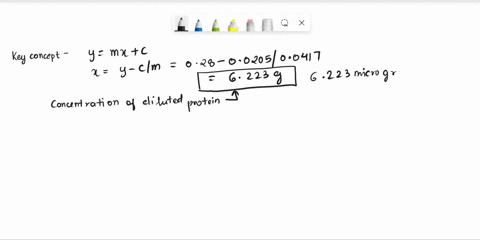 Key concept - y = mx + c
x = y - c/m = 0.28 - 0.0205/0.0417
= 6.223 g 6.223 microgr
Concentration of diluted protein